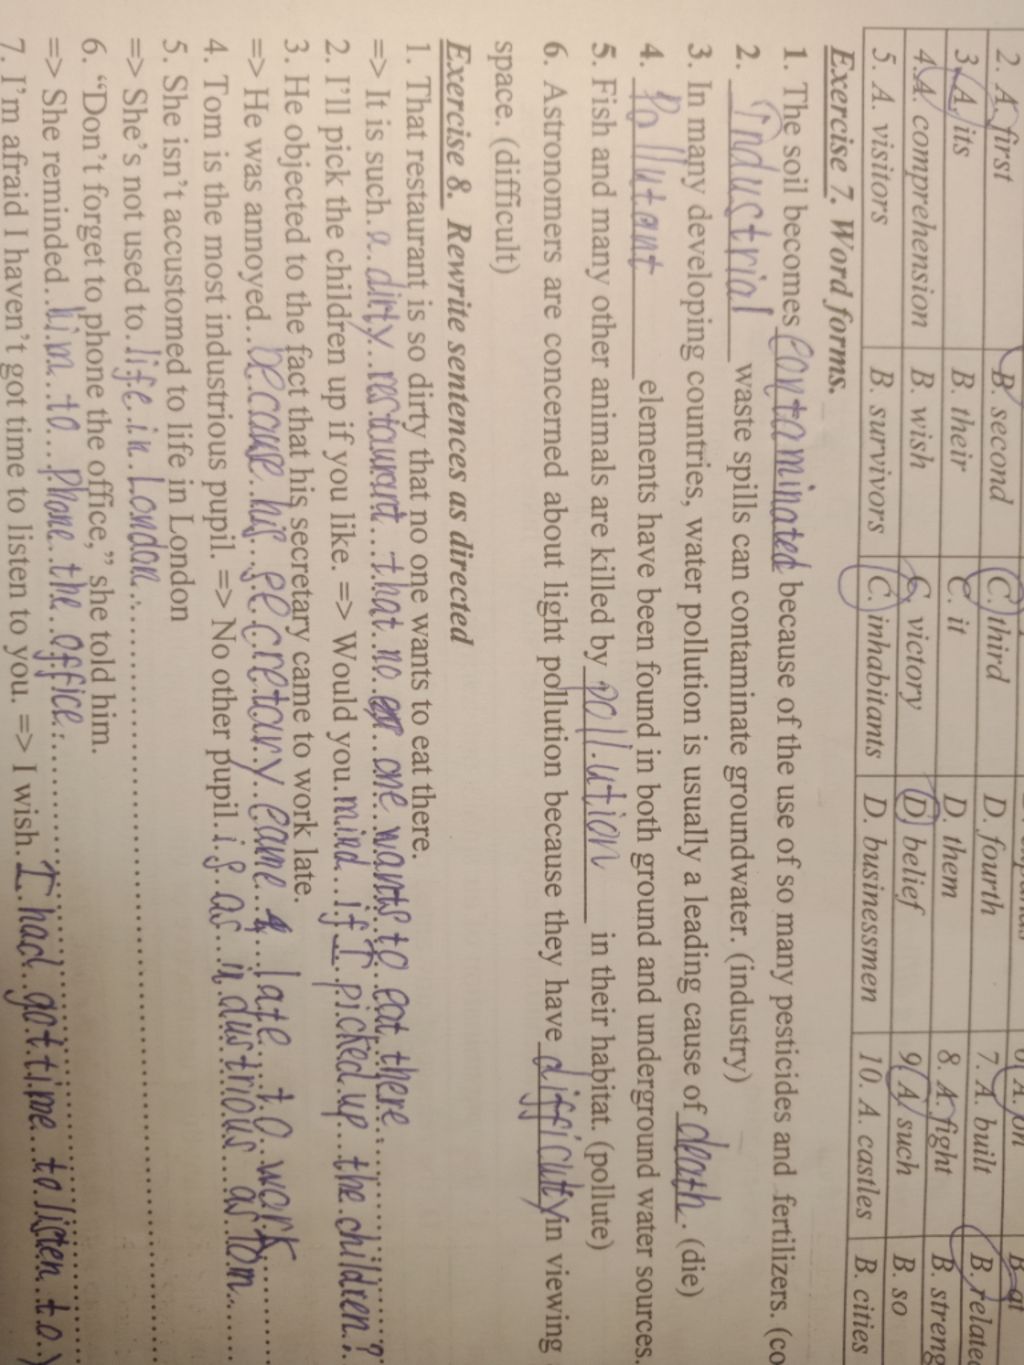 2. A. first B. second C. third D. fourth 7. A. built B. related
3. A. its B. their C. it D. them 8. A. fight
4. A. comprehension B. wish C. victory D. belief 9. A. such B. so
5. A. visitors B. survivors C. inhabitants D. businessmen 10. A. castles B. cities
Exercise 7. Word forms.
1. The soil becomes contaminated because of the use of so many pesticides and fertilizers. (co
2. industrial waste spills can contaminate groundwater. (industry)
3. In many developing countries, water pollution is usually a leading cause of death. (die)
4. Pollutant elements have been found in both ground and underground water sources.
5. Fish and many other animals are killed by pollution in their habitat. (pollute)
6. Astronomers are concerned about light pollution because they have difficulty in viewing
space. (difficult)
Exercise 8. Rewrite sentences as directed
1. That restaurant is so dirty that no one wants to eat there.
=> It is such a dirty restaurant that no one wants to eat there
2. I'll pick the children up if you like. => Would you mind if I picked up the children?
3. He objected to the fact that his secretary came to work late.
=> He was annoyed because his secretary came late to work
4. Tom is the most industrious pupil. => No other pupil is as industrious as Tom
5. She isn't accustomed to life in London
=> She's not used to life in London
6. "Don't forget to phone the office," she told him.
=> She reminded him to phone the office
7. I'm afraid I haven't got time to listen to you. => I wish I had got time to listen to y